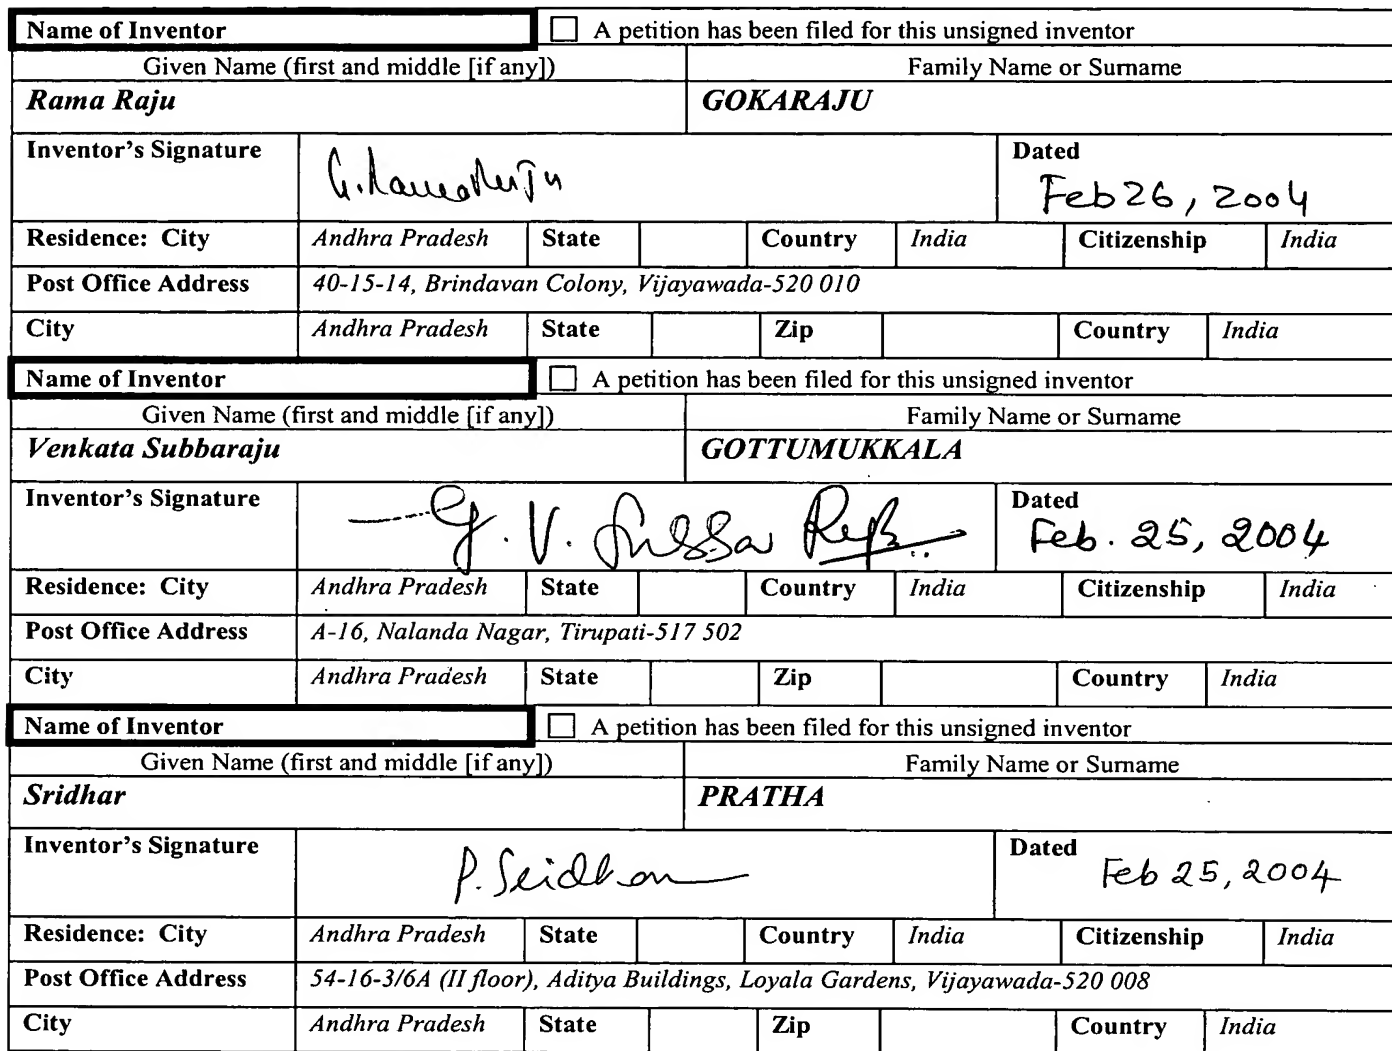 Name of Inventor ☐ A petition has been filed for this unsigned inventor
Given Name (first and middle [if any]) Family Name or Surname
Rama Raju GOKARAJU
Inventor's Signature G. Rama Raju Dated
Feb 26, 2004
Residence: City Andhra Pradesh State Country India Citizenship India
Post Office Address 40-15-14, Brindavan Colony, Vijayawada-520 010
City Andhra Pradesh State Zip Country India
Name of Inventor ☐ A petition has been filed for this unsigned inventor
Given Name (first and middle [if any]) Family Name or Surname
Venkata Subbaraju GOTTUMUKKALA
Inventor's Signature G. V. Subba Raju Dated
Feb. 25, 2004
Residence: City Andhra Pradesh State Country India Citizenship India
Post Office Address A-16, Nalanda Nagar, Tirupati-517 502
City Andhra Pradesh State Zip Country India
Name of Inventor ☐ A petition has been filed for this unsigned inventor
Given Name (first and middle [if any]) Family Name or Surname
Sridhar PRATHA
Inventor's Signature P. Sridhar Dated
Feb 25, 2004
Residence: City Andhra Pradesh State Country India Citizenship India
Post Office Address 54-16-3/6A (II floor), Aditya Buildings, Loyala Gardens, Vijayawada-520 008
City Andhra Pradesh State Zip Country India